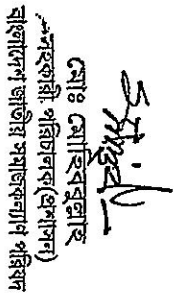 মোঃ মোহিবুল্লাহ
সহকারী পরিচালক(প্রশাসন)
বাংলাদেশ জাতীয় সমাজকল্যাণ পরিষদ